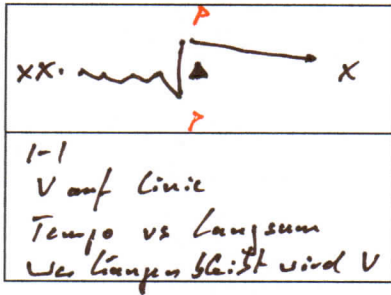 P
xx. x
P
1-1
V auf Linie
Tempo vs Langsam
Wer hängen bleibt wird V